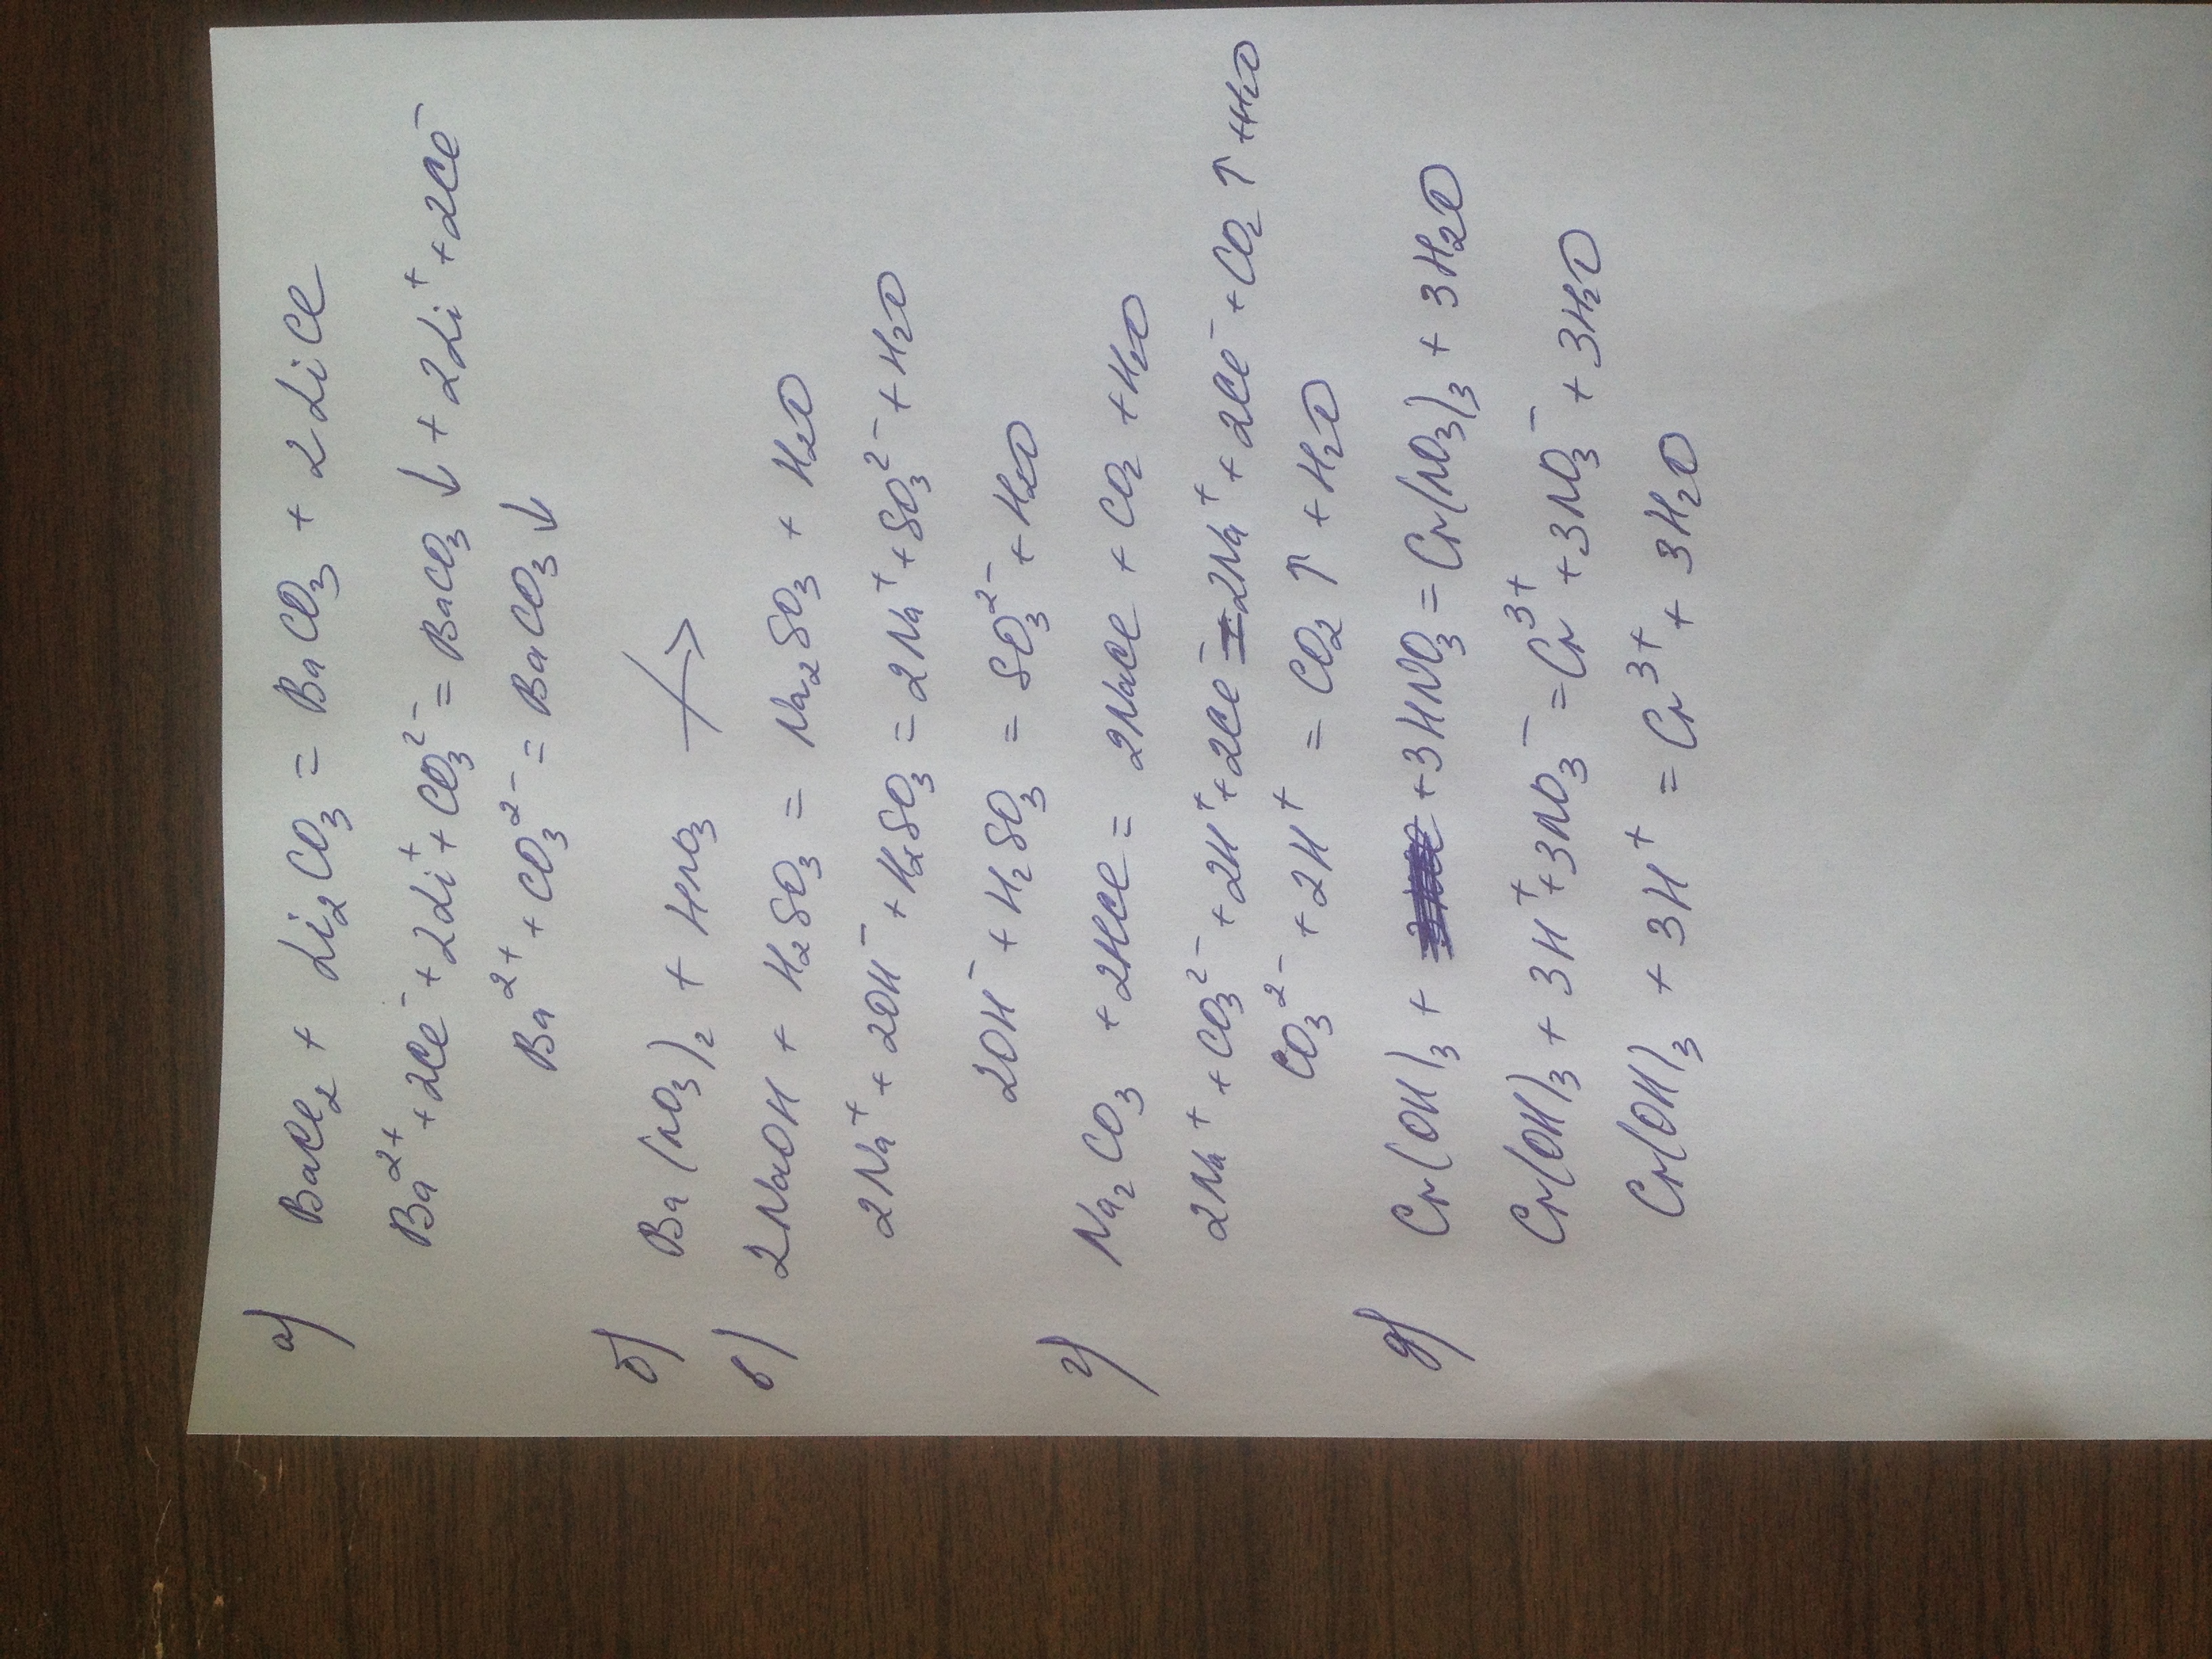 а) BaCl₂ + Li₂CO₃ = BaCO₃ + 2LiCl
Ba²⁺ + 2Cl⁻ + 2Li⁺ + CO₃²⁻ = BaCO₃↓ + 2Li⁺ + 2Cl⁻
Ba²⁺ + CO₃²⁻ = BaCO₃↓
б) Ba(NO₃)₂ + HNO₃ ↛
в) 2NaOH + H₂SO₃ = Na₂SO₃ + H₂O
2Na⁺ + 2OH⁻ + H₂SO₃ = 2Na⁺ + SO₃²⁻ + H₂O
2OH⁻ + H₂SO₃ = SO₃²⁻ + H₂O
г) Na₂CO₃ + 2HCl = 2NaCl + CO₂ + H₂O
2Na⁺ + CO₃²⁻ + 2H⁺ + 2Cl⁻ = 2Na⁺ + 2Cl⁻ + CO₂↑ + H₂O
CO₃²⁻ + 2H⁺ = CO₂↑ + H₂O
д) Cr(OH)₃ + + 3HNO₃ = Cr(NO₃)₃ + 3H₂O
Cr(OH)₃ + 3H⁺ + 3NO₃⁻ = Cr³⁺ + 3NO₃⁻ + 3H₂O
Cr(OH)₃ + 3H⁺ = Cr³⁺ + 3H₂O